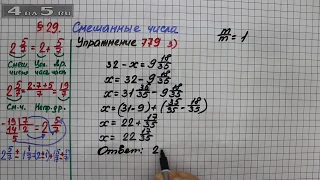 4 на 5.ru
§ 29. Смешанные числа
Упражнение 779 3)
m/m = 1
2 5/7 = 2 + 5/7
Смеш. Цел. Др.
число часть часть
2 5/7 = 2·7+5/7 = 19/7
См.ч. Непр.др.
32 - x = 9 18/35
x = 32 - 9 18/35
x = 31 35/35 - 9 18/35
x = (31 - 9) + (35/35 - 18/35)
x = 22 + 17/35
x = 22 17/35
Ответ: 2